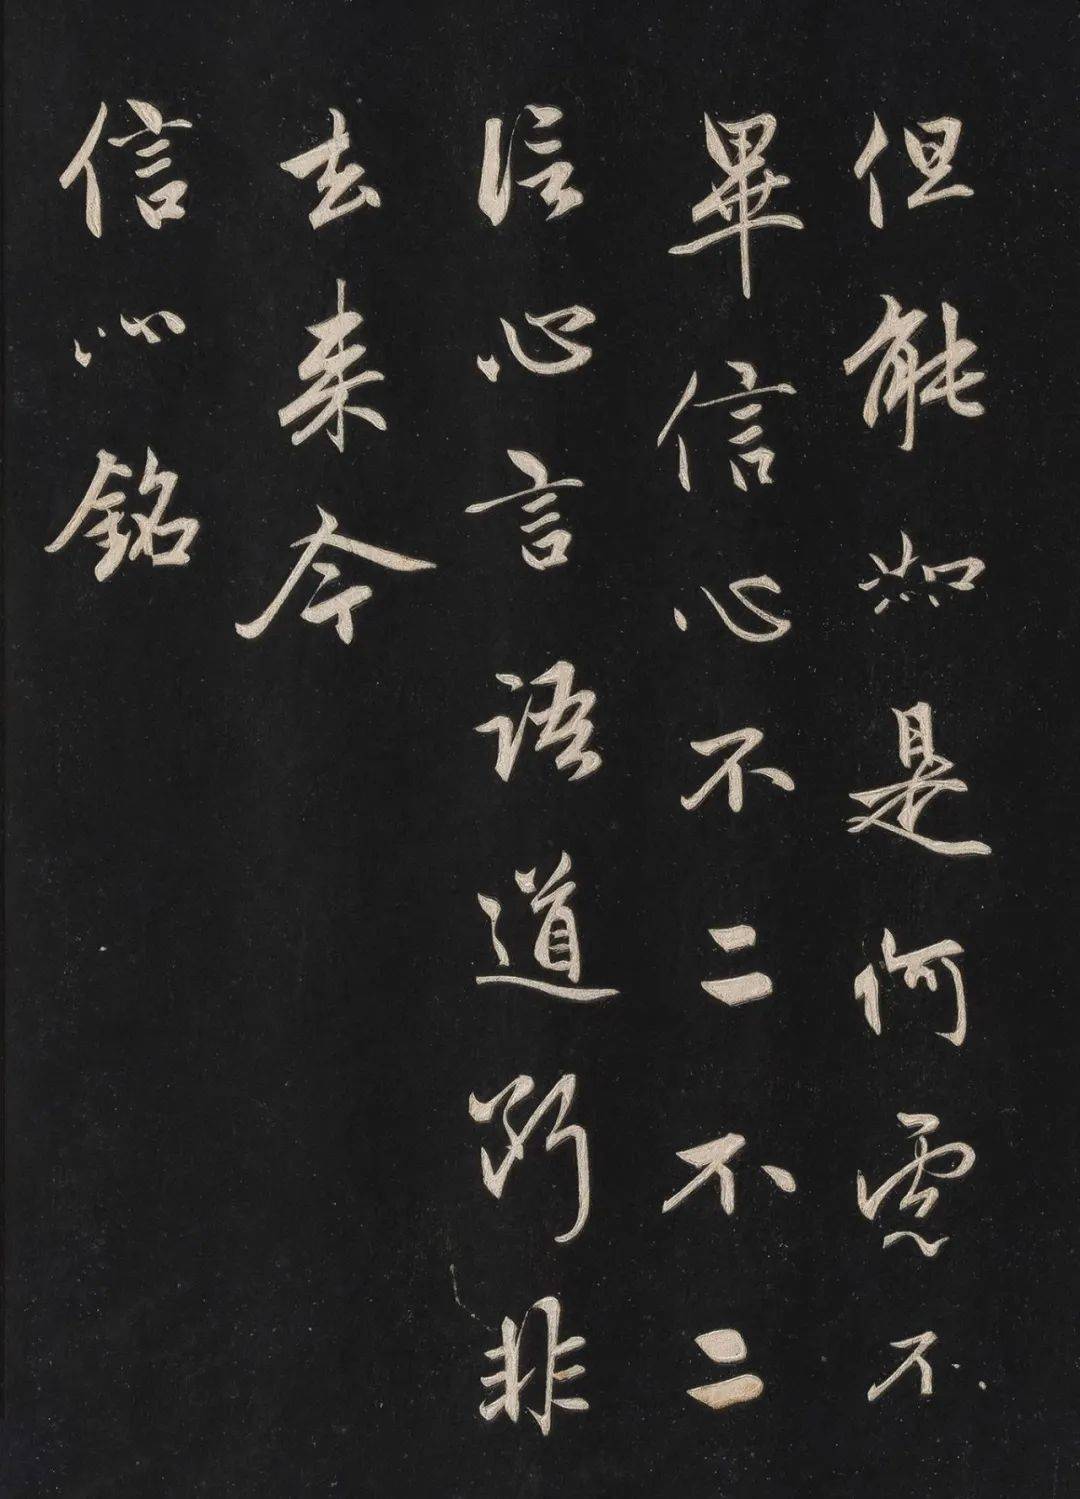 但能如是何慮不
畢信心不二不二
信心言語道断非
去来今
信心銘